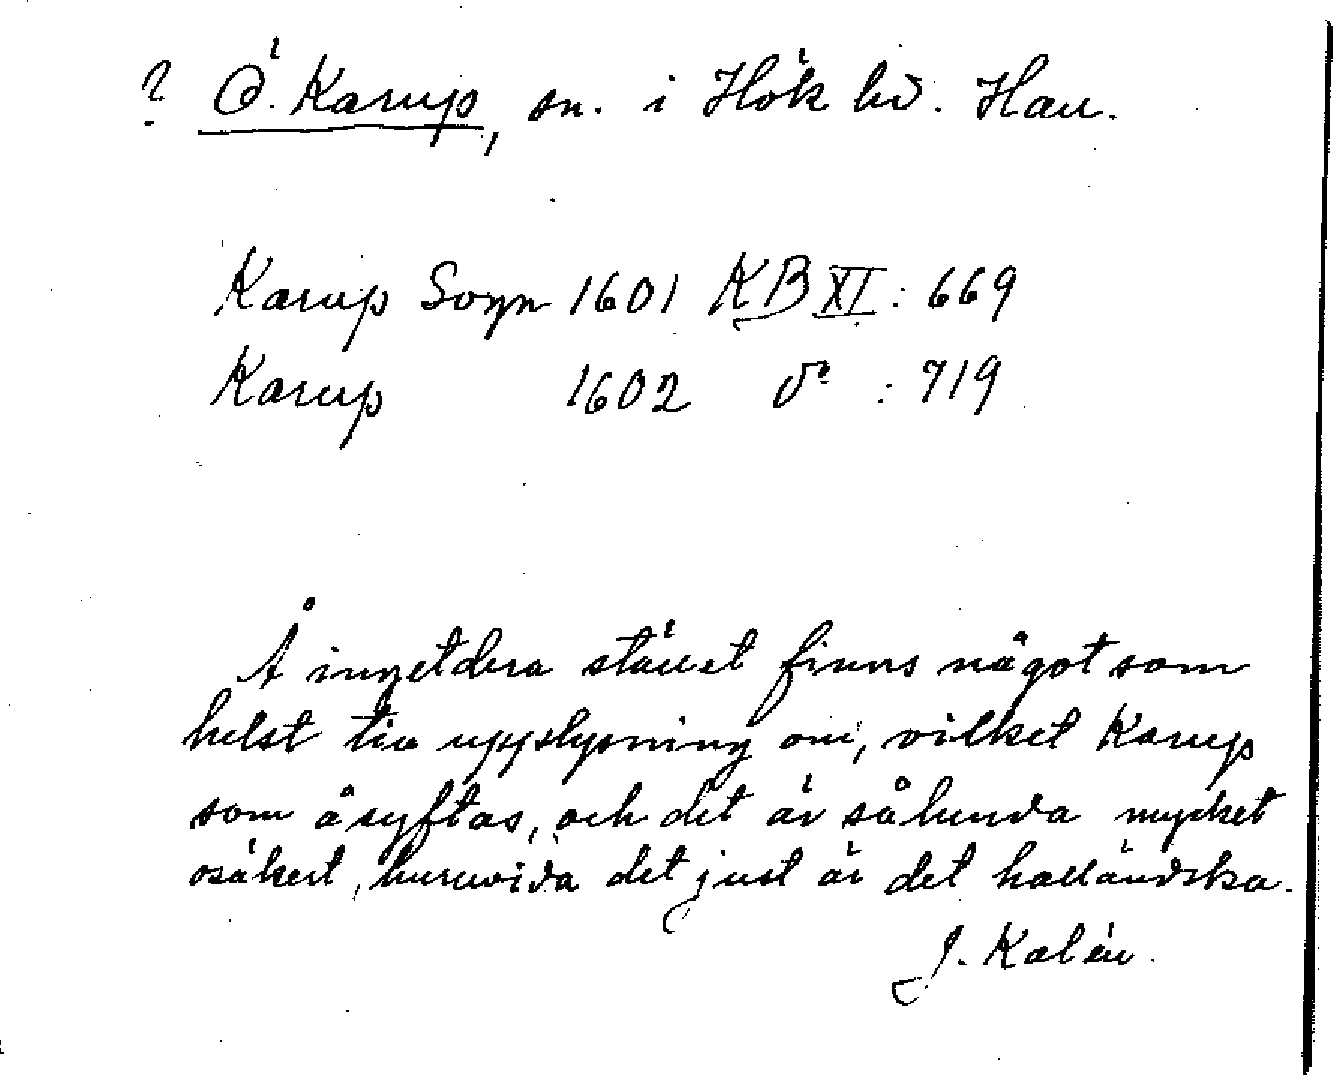 ? Ö. Karup, sn. i Hök hd. Hall.
Karup Sogn 1601 KB XI : 669
Karup 1602 do : 719
Å ingetdera stället finns något som
helst till upplysning om, vilket Karup
som åsyftas, och det är sålunda mycket
osäkert, huruvida det just är det halländska.
J. Kalén.